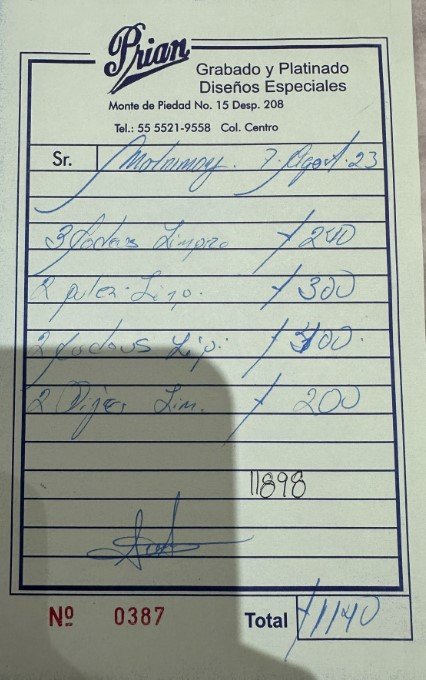 Prian
Grabado y Platinado
Diseños Especiales
Monte de Piedad No. 15 Desp. 208
Tel.: 55 5521-9558 Col. Centro
Sr. 7 Agost. 23
3 Limpio $240
2 $300
2
2 Dijes Lim. $200
11898
Nº 0387 Total $1140